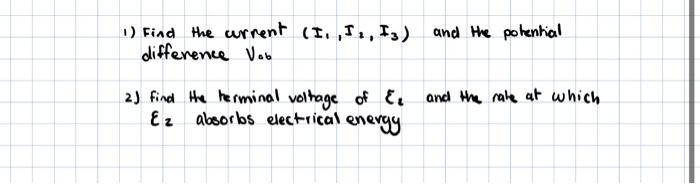 1) Find the current (I₁, I₂, I₃) and the potential
difference Vab
2) find the terminal voltage of ℰ₂ and the rate at which
ℰ₂ absorbs electrical energy